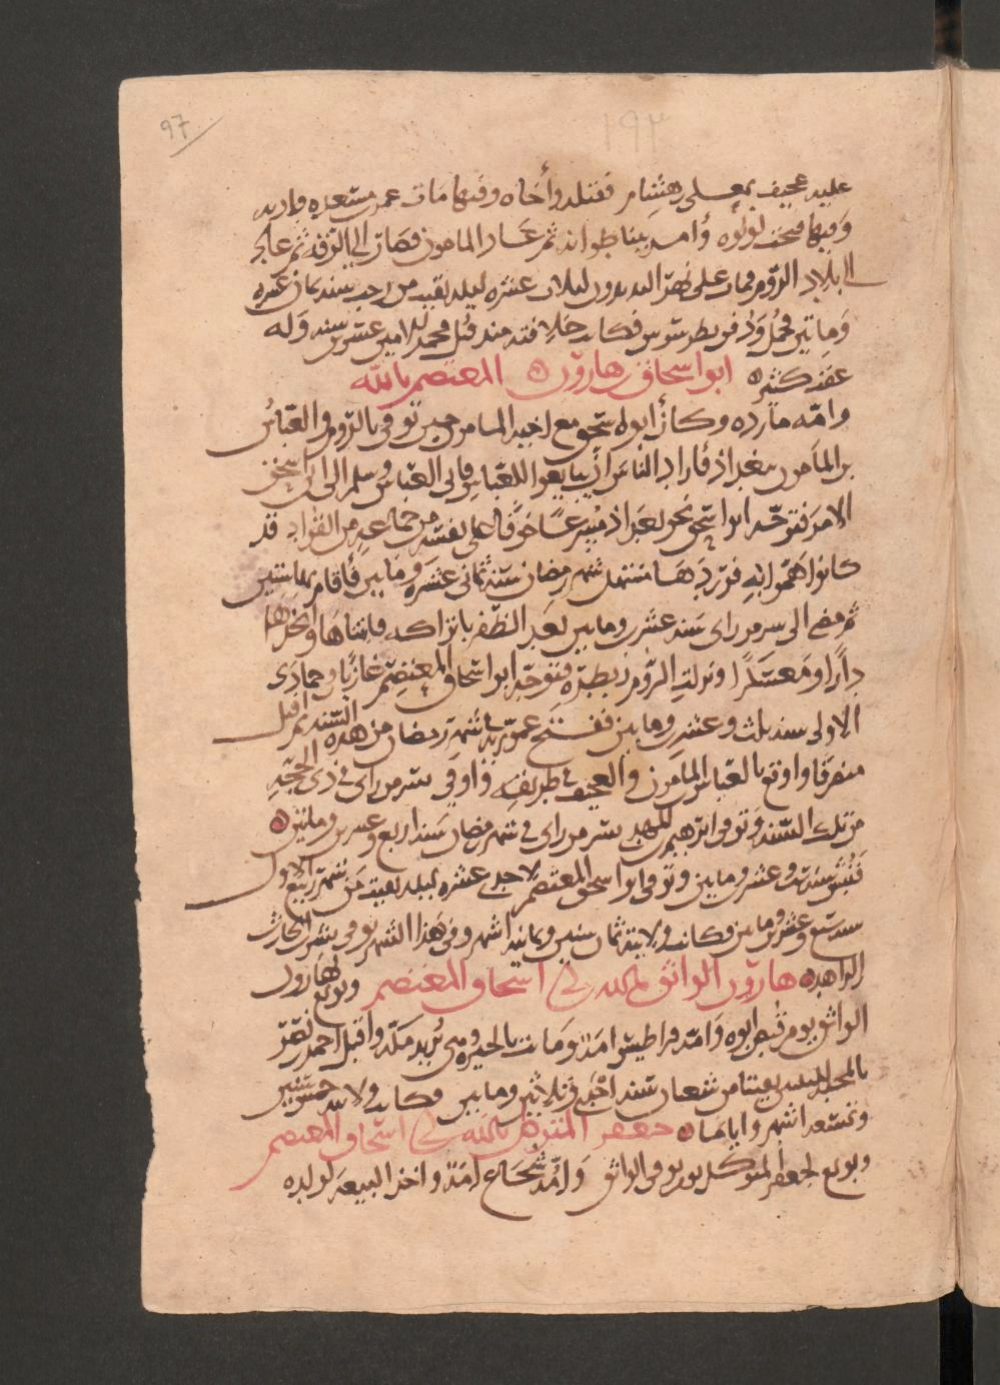 97
١٩٣
عليه عجيف بعلي بن هشام فقتله وأخاه وفيها مات عمرو بن مسعده باذنه
وفيها فتحت لولوه وأمر ببنا طوانه ثم عاد المامون فصار الى الرقه ثم عاد
الى بلاد الروم فمات على نهر البدندون لثلاث عشره ليله بقيت من رجب سنه ثمان عشره
وماتين فحمل ودفن بطرسوس فكانت خلافته منذ قتل محمد الامين عشرين سنه وله
عقب كثير ابو اسحاق بن هارون المعتصم بالله
وامه مارده وكان ابو اسحق مع اخيه المامون حين توفى بالروم والعباس
بن المامون ببغداذ فاراد الناس أن يبايعوا للعباس فابى العباس وسلم الى ابى اسحق
الامر فتوجه ابو اسحق نحو بغداذ مسرعًا خوفًا على نفسه من جماعه من القواد قد
كانوا هموا به فورد بغداذ مستهل شهر رمضان سنة ثمانى عشره ومايتين فأقام بها سنتين
ثم مضى الى سر من راى سنه عشرين ومايتين بعد الظفر باتراكه فابتناها واتخذها
دارًا ومعسكرًا ونزلت الروم زبطره فتوجه ابو اسحاق المعتصم غازيًا فى جمادى
الاولى سنه ثلث وعشرين ومايتين ففتح عموريه شهر رمضان من هذه السنه ثم اقبل
منصرفا واوقع بالعباس بن المامون والعجيف فى طريقه ووافى سر من راى فى ذى الحجه
من تلك السنه وتوفى ابرهيم بن المهدى بسر من راى فى شهر رمضان سنه اربع وعشرين وماتين
سنه ست وعشرين ومايتين وتوفى ابو اسحق المعتصم لاحدى عشره ليله بقيت من شهر ربيع الاول
سنه سبع وعشرين ومايتين وكانت ولايته ثمان سنين وثمانيه اشهر وفى هذا الشهر توفى بشر بن الحارث
الزاهد هارون الواثق بالله بن اسحاق المعتصم وبويع لهارون
الواثق يوم قبض ابوه وامه قراطيس امة وماتت بالحيره وهى تريد مكه واقبل احمد بن نصر
لليلتين بقيتا من شعبان سنه احدى وثلاثين ومايتين وكانت ولايته خمس سنين
وتسعه اشهر واياما جعفر المتوكل بالله بن اسحاق المعتصم
وبويع لجعفر المتوكل يوم توفى الواثق وامه شجاع امة واخذ البيعه لولده